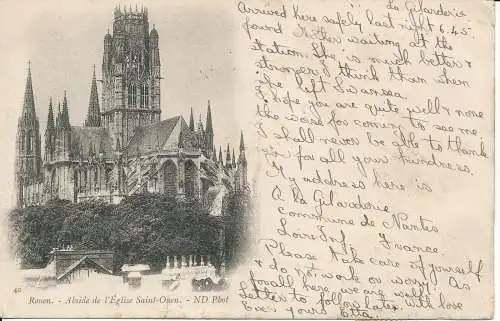 La Gilarderie
Arrived here safely last night 6.45.
found Mother waiting at the
station. She is much better &
stronger I think than when
she left Swansea.
I hope you are quite well & none
the worse for coming to see me
I shall never be able to thank
you for all your kindness.
My address here is
A la Gilarderie
Commune de Nantes
Loire Inf. France.
Please take care of yourself
& do not work or worry. As
for all here we are well.
Letter to follow later with love
Ever yours Etta.
40
Rouen. - Abside de l'Église Saint-Ouen. - ND Phot